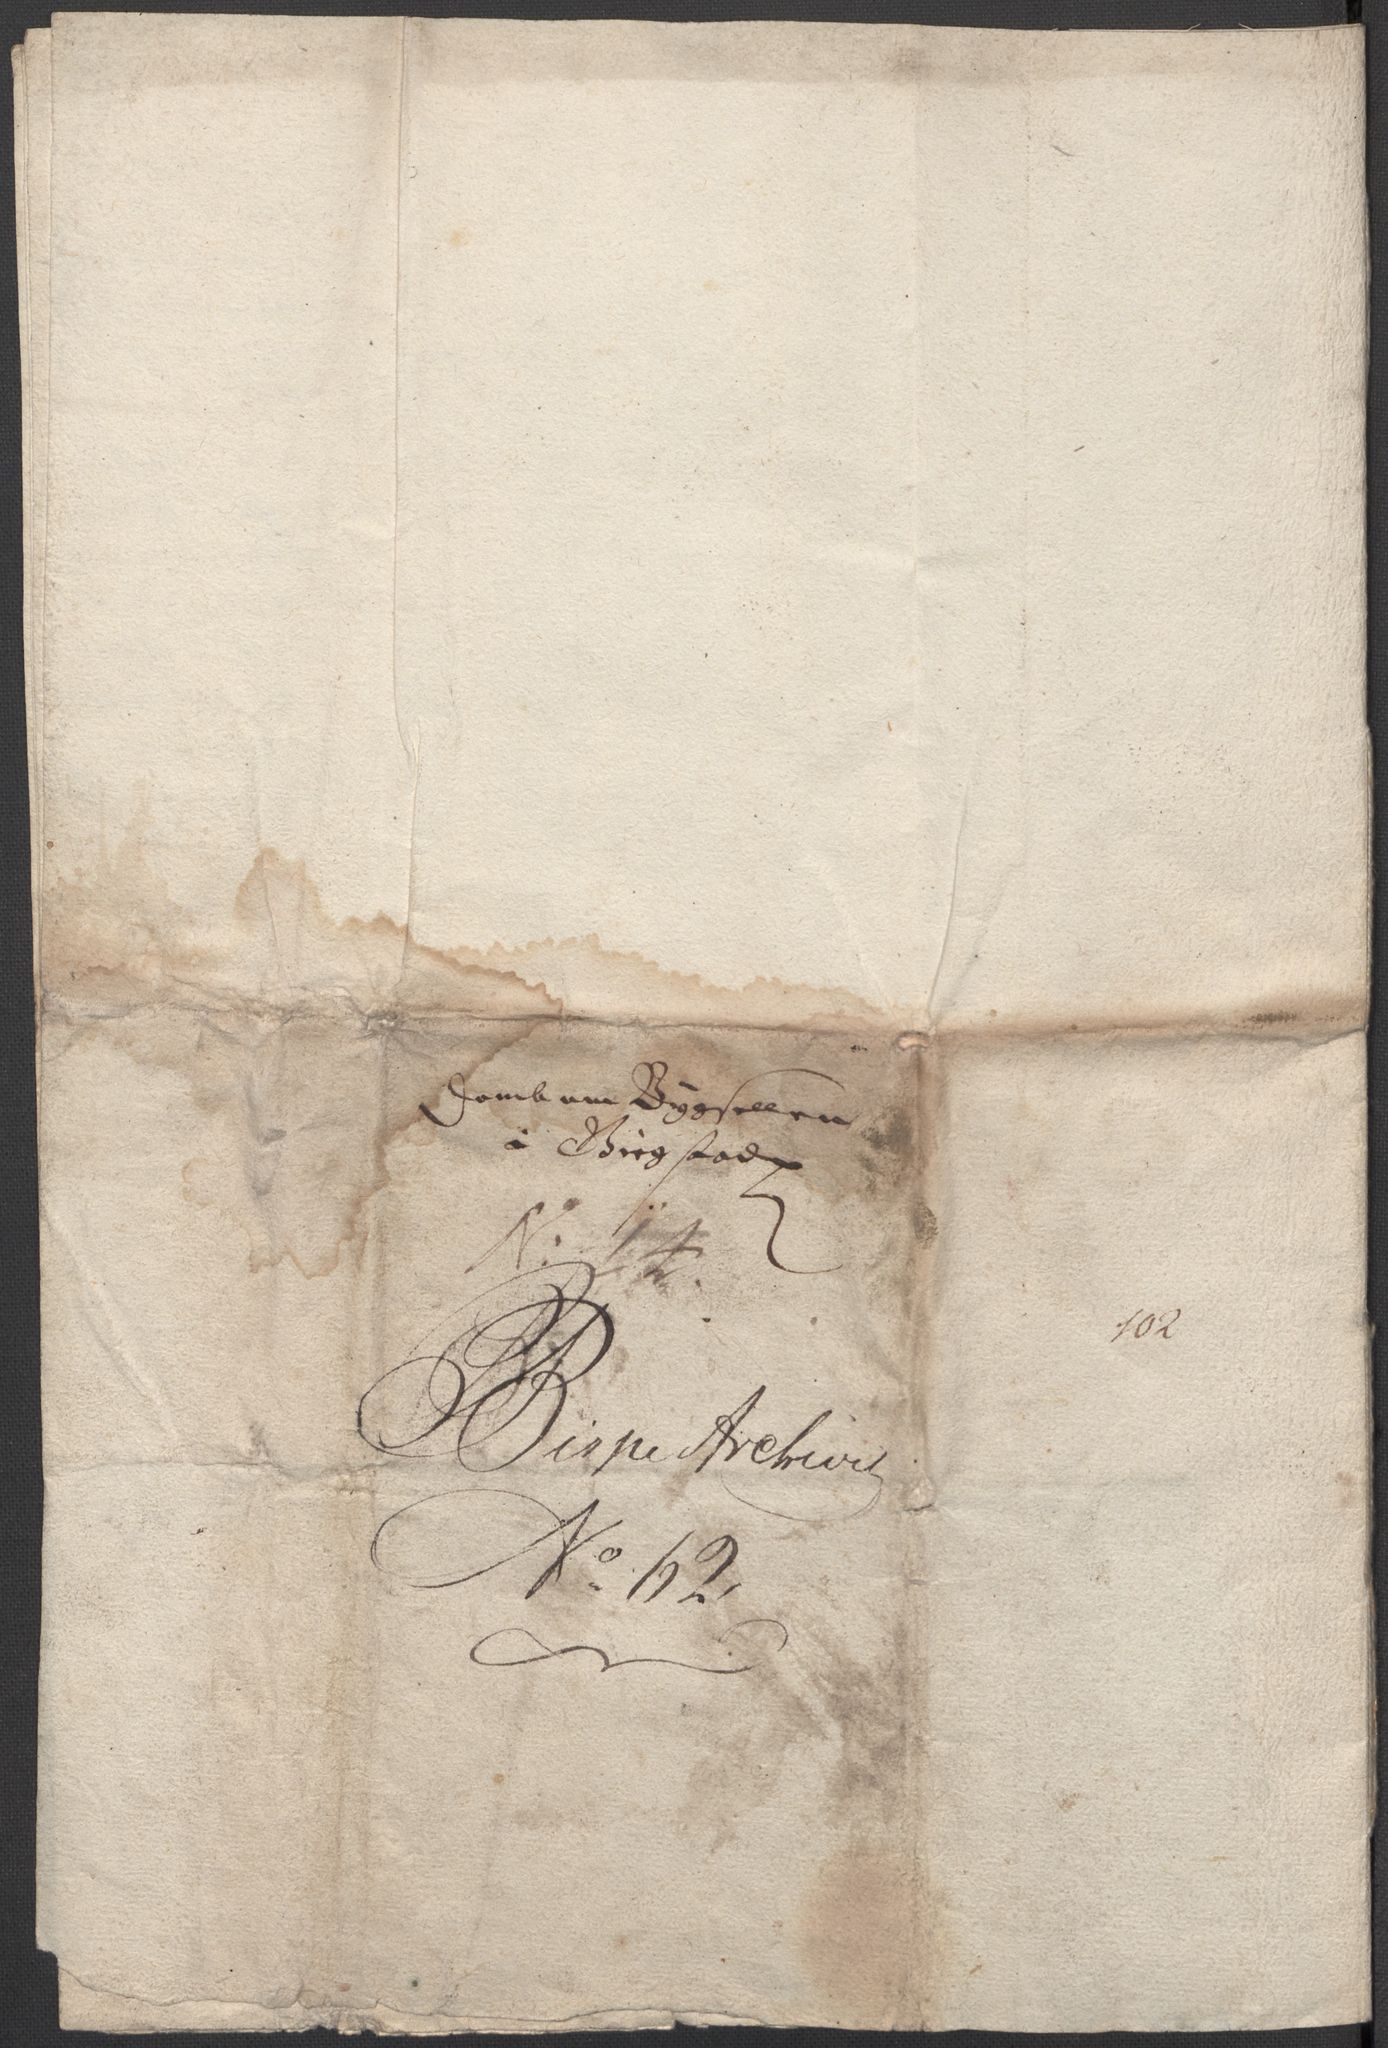 Domb om Bÿgsellen
i Birgstad
N. 14.
Bispe Archivet
No. 62,
102